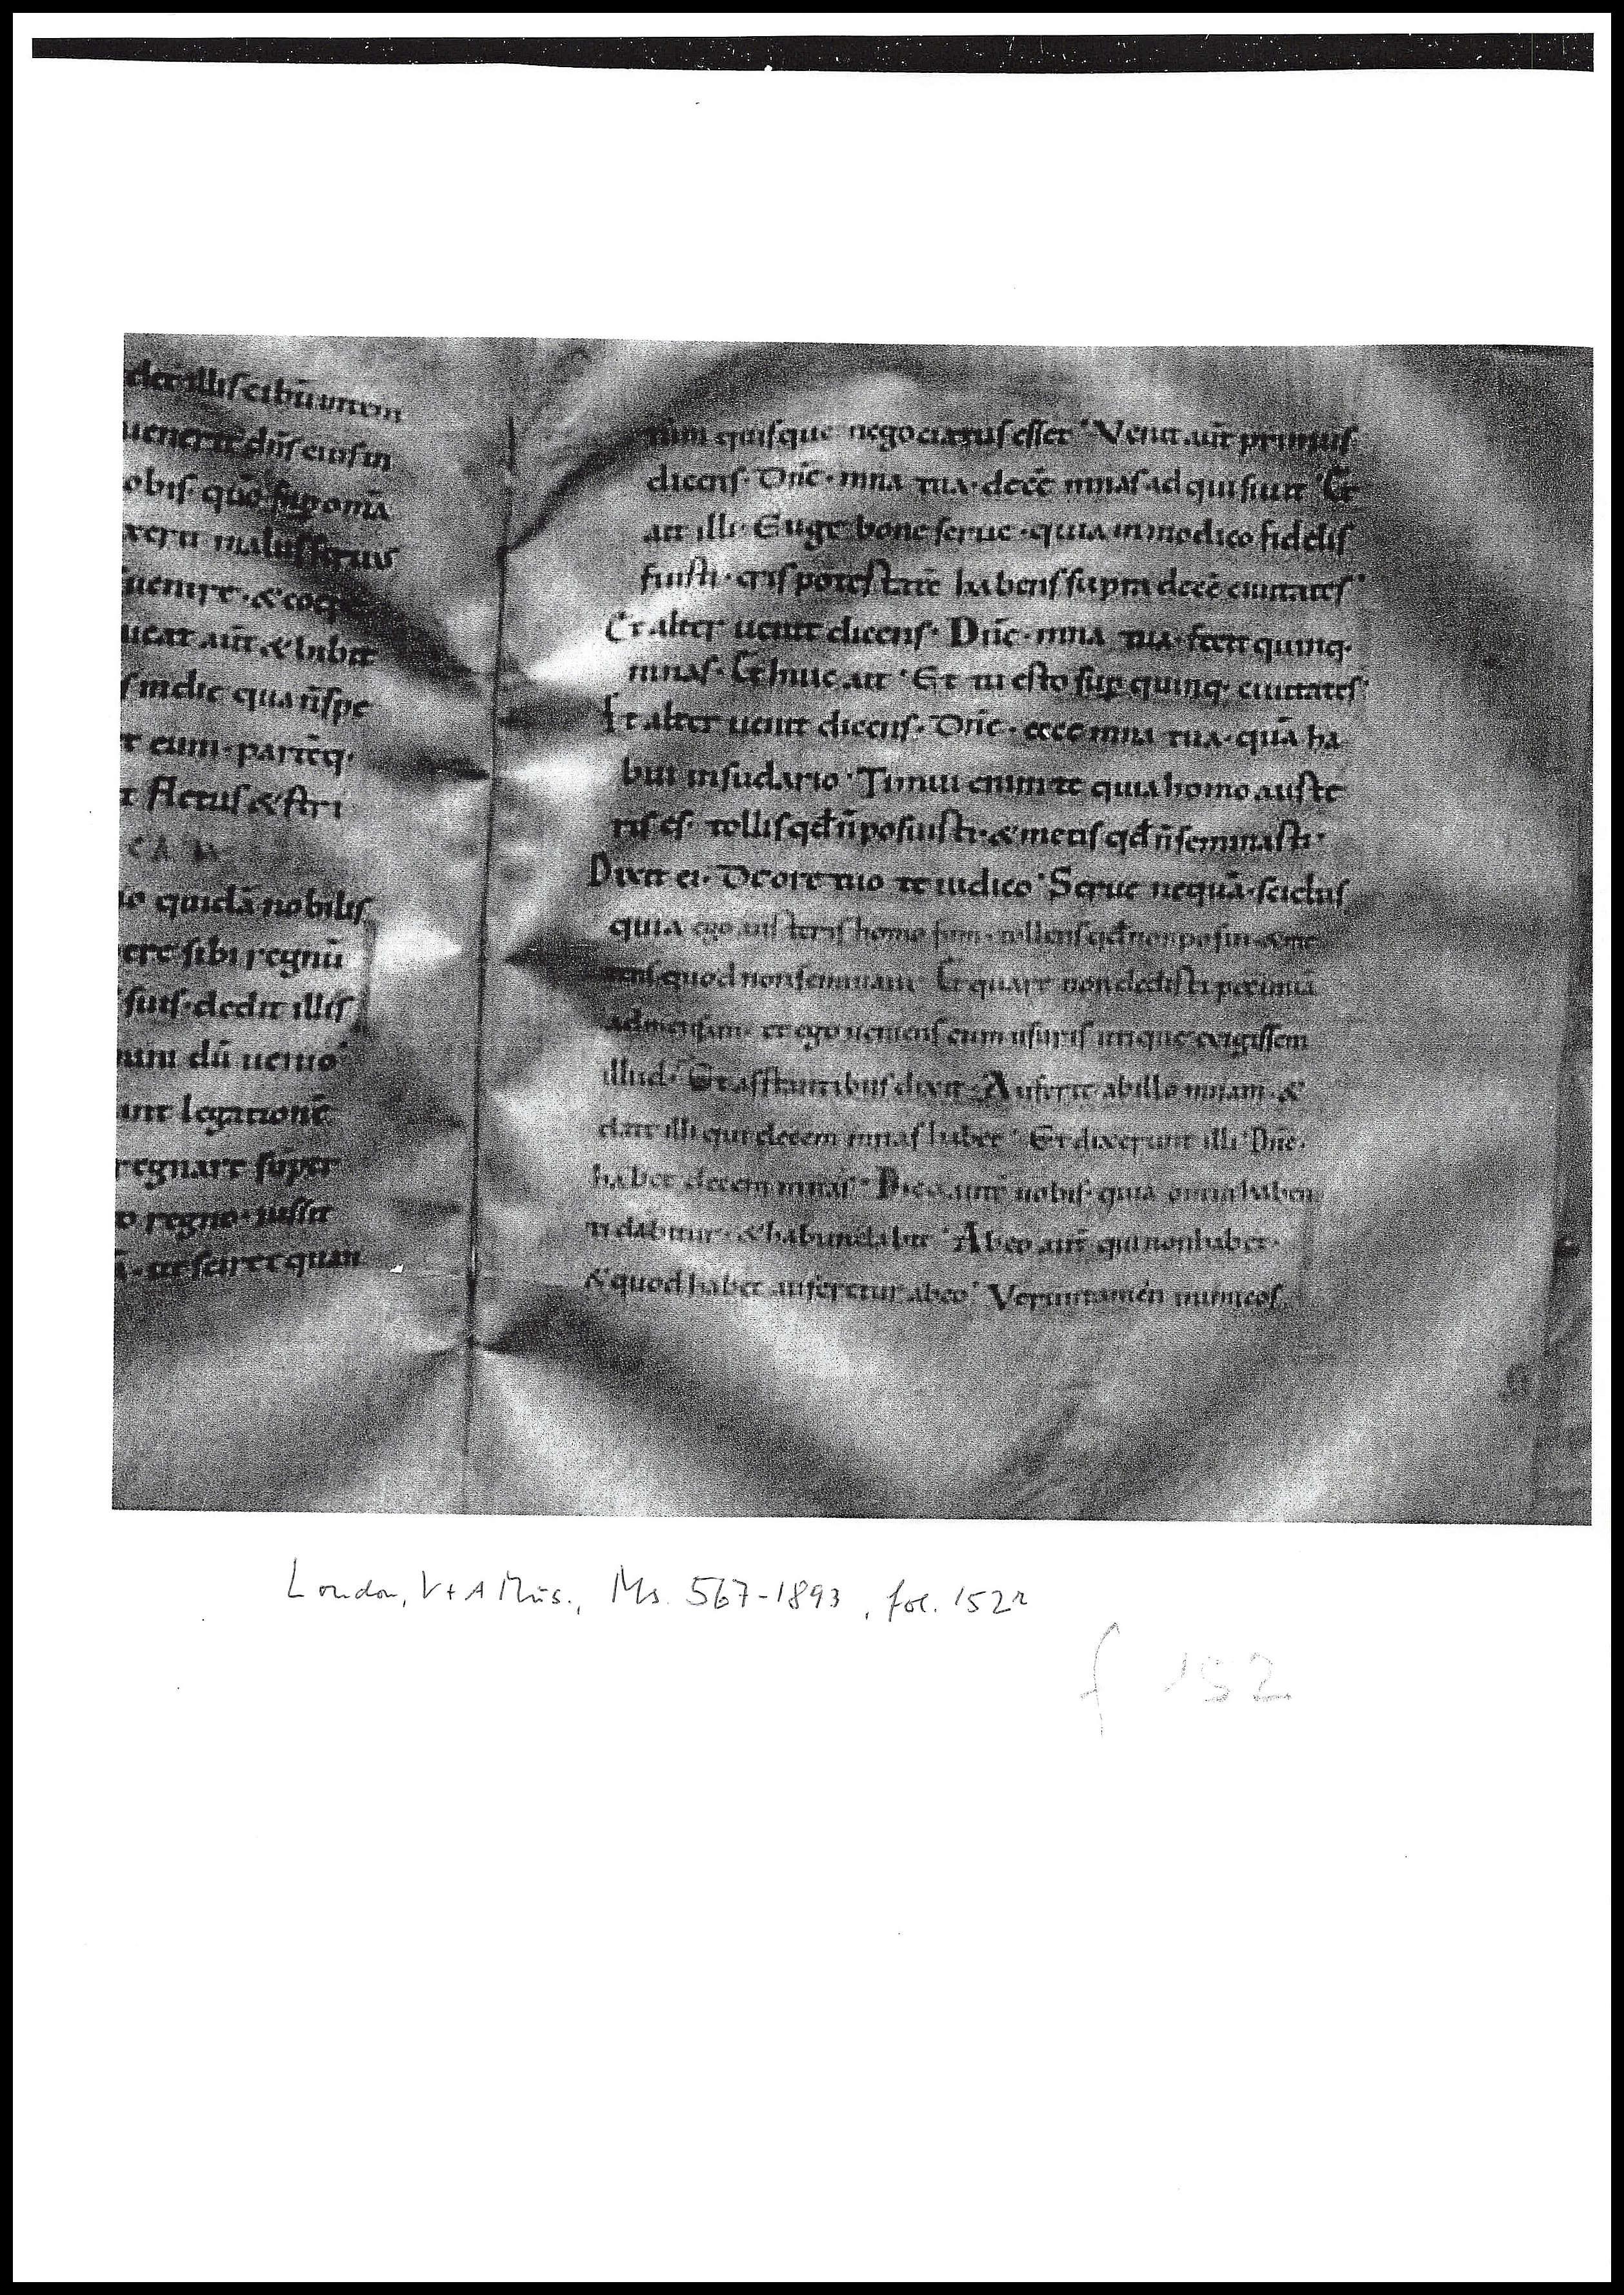 det illis cibū in tem
uenerit dn̄s eius in
obis. quō sup omā
xerit malus seruus
uenire. & coep
ucat aūt & bibit
s in die qua n̄ spe
t eum. partēq.
t fletus & stri
io quidā nobilis
ere sibi regnū
suis. dedit illis
unt dū uenio
unt legationē
regnare super
o regno. iussit
ā. ut sciret quan
tum quisque negociatus esset. Venit aūt primus
dicens. Dn̄e. mna tua. decē mnas adquisiuit. Et
ait illi. Euge bone serue. quia in modico fidelis
fuisti. eris potestatē habens supra decē ciuitates.
Et alter uenit dicens. Dn̄e. mna tua. fecit quinq.
mnas. Et huic ait. Et tu esto sup quinq. ciuitates.
Et alter uenit dicens. Dn̄e. ecce mna tua. quā ha
bui in sudario. Timui enim te quia homo auste
rus es. tollis qd n̄ posuisti. & metis qd n̄ seminasti.
Dixit ei. De ore tuo te iudico. Serue nequā. sciebas
quia ego austerus homo sum. tollens qd non posui. & me
tens quod non seminaui. Et quare non dedisti pecuniā
ad mensam. et ego ueniens cum usuris utique exigissem
illud. Et asstantibus dixit. Auferte ab illo mnam. &
date illi qui decem mnas habet. Et dixerunt illi. Dn̄e.
habet decem mnas. Dico aūt uobis. quia omni haben
ti dabitur. & habundabit. Ab eo aūt qui non habet.
& quod habet auferetur ab eo. Veruntamen inimicos
London, V+A Mus., Ms. 567-1893, fol. 152r
f 152